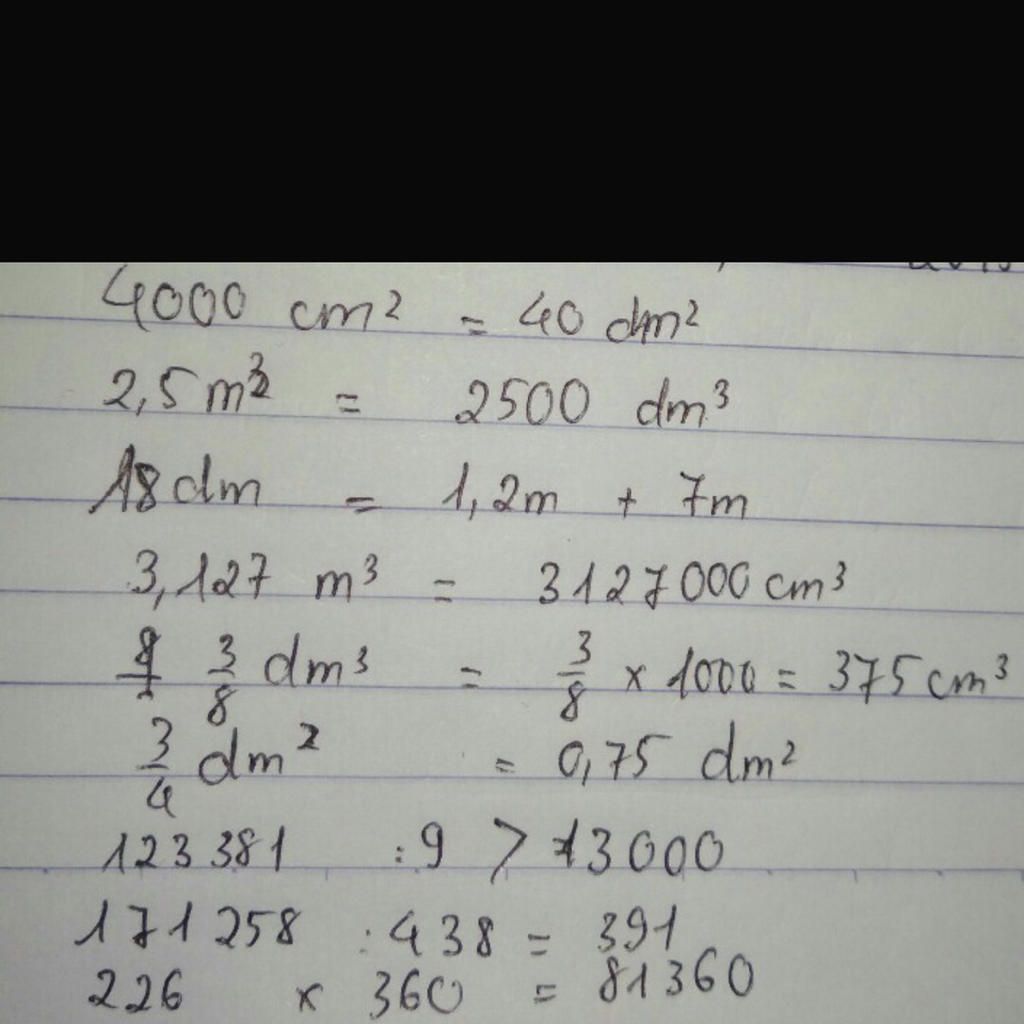 4000 cm² = 40 dm²
2,5 m³ = 2500 dm³
18 dm = 1,2m + 7m
3,127 m³ = 3127000 cm³
3/8 dm³ = 3/8 x 1000 = 375 cm³
3/4 dm² = 0,75 dm²
123 381 : 9 > 13000
171 258 : 438 = 391
226 x 360 = 81360